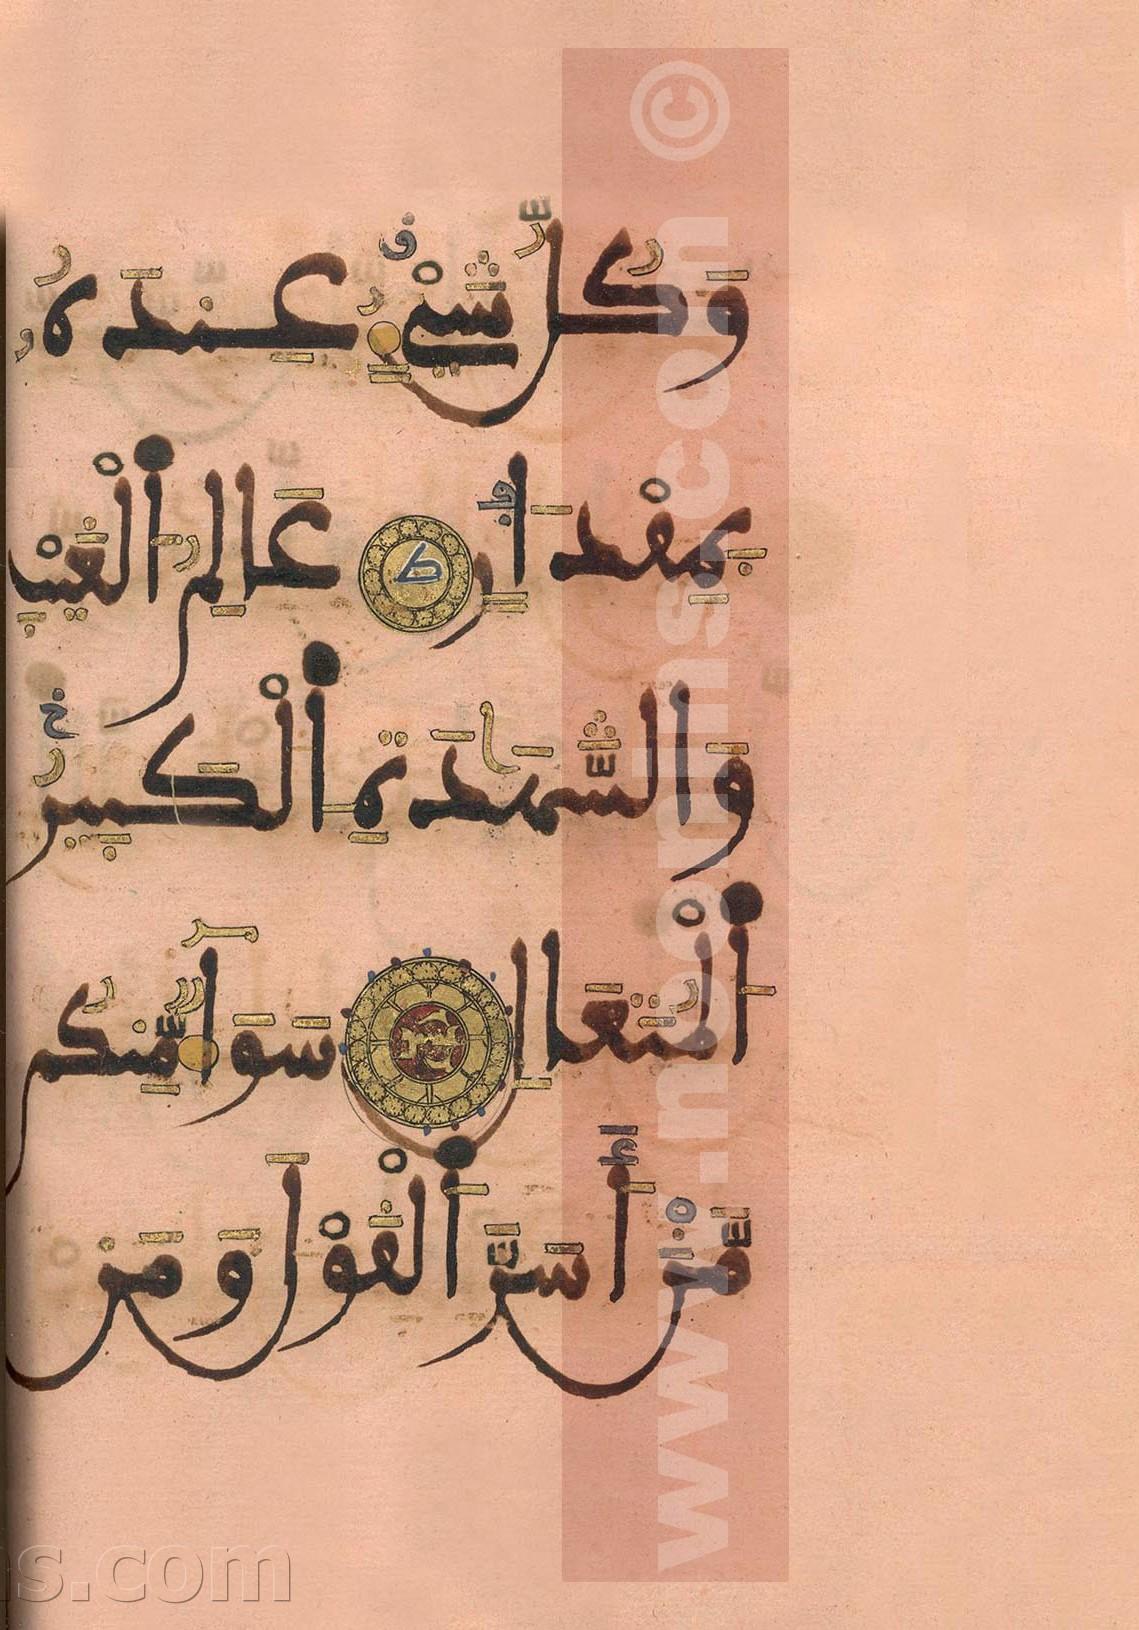 وَكُلُّ شَيْءٍ عِندَهُ
بِمِقْدَارٍ عَالِمُ الْغَيْبِ
وَالشَّهَٰدَةِ الْكَبِيرُ
الْمُتَعَالِ سَوَآءٌ مِّنكُم
مَّنْ أَسَرَّ الْقَوْلَ وَمَن
www.noormins.com ©
ns.com